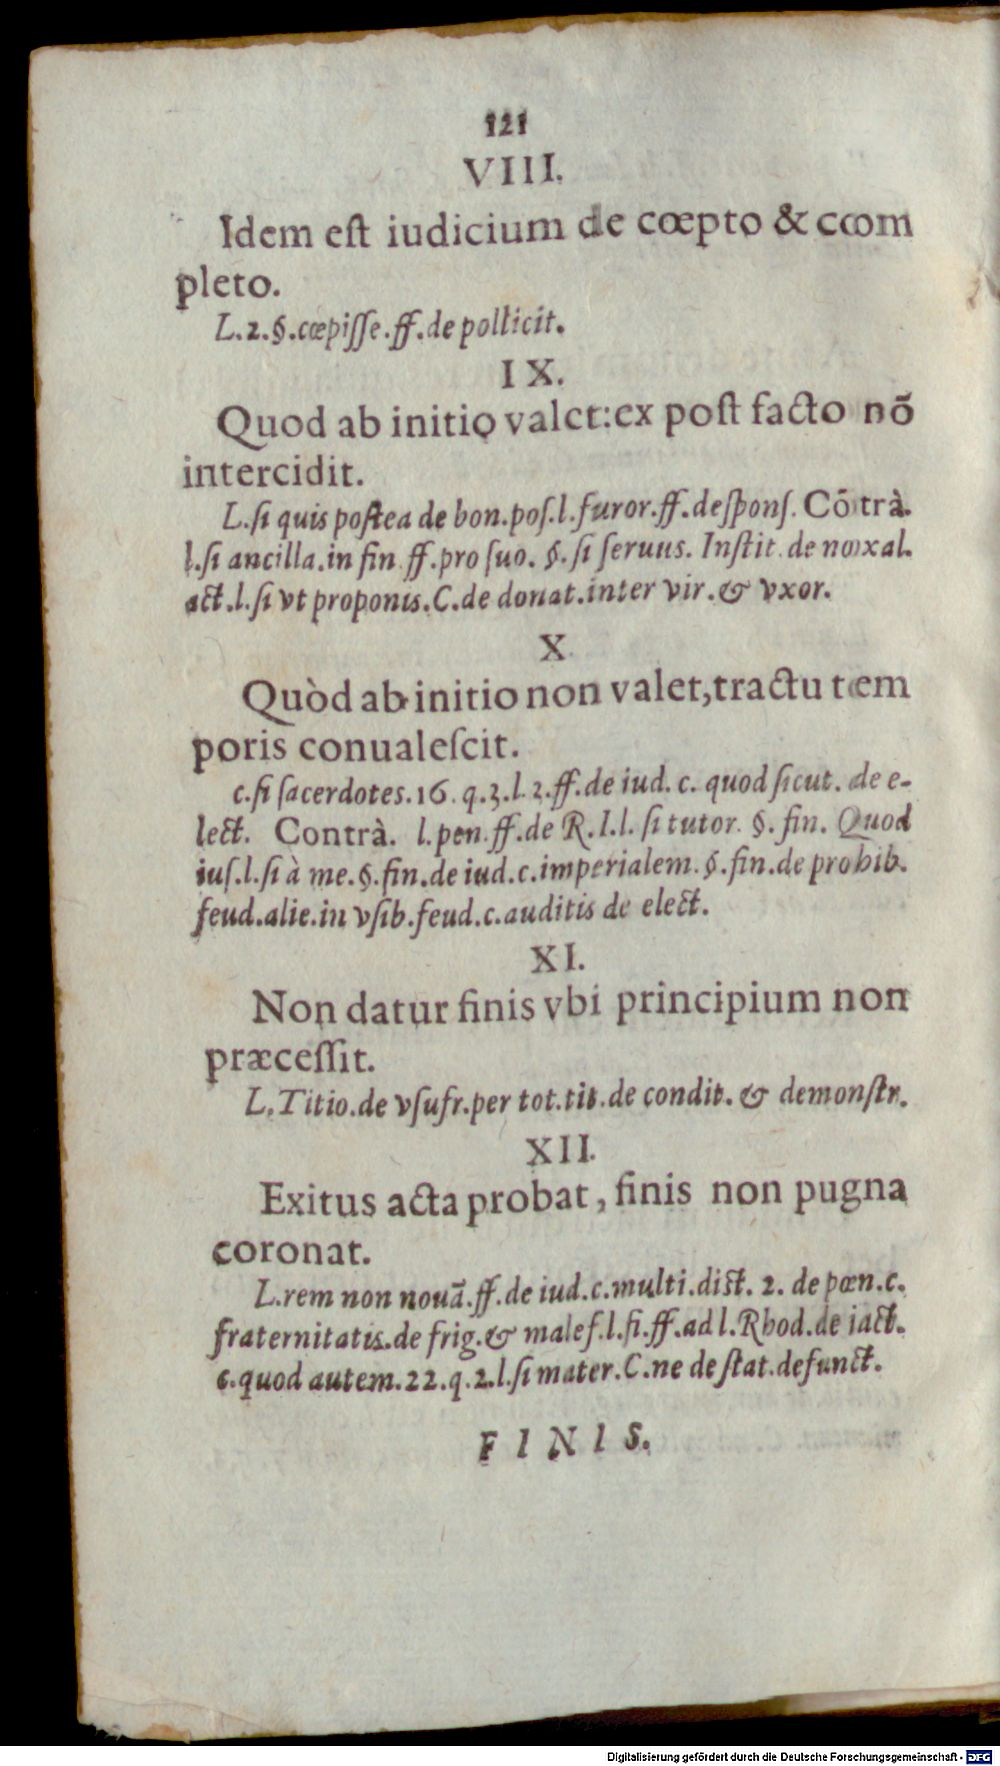 121
VIII.
Idem eſt iudicium de cœpto & com
pleto.
L.2.§.cœpiſſe.ff.de pollicit.
IX.
Quod ab initio valet:ex poſt facto nō
intercidit.
L.ſi quis poſtea de bon.poſ.l.furor.ff.deſponſ. Cōtrà.
l.ſi ancilla.in fin.ff.pro ſuo. §.ſi ſeruus. Inſtit.de noxal.
act.l.ſi vt proponis.C.de donat.inter vir.& vxor.
X
Quòd ab initio non valet,tractu tem
poris conualeſcit.
c.ſi ſacerdotes.16.q.3.l.2.ff.de iud. c. quod ſicut. de e-
lect. Contrà. l.pen.ff.de R.I.l. ſi tutor. §. fin. Quod
iuſ.l.ſi à me.§.fin.de iud.c.imperialem.§.fin.de prohib.
feud.alie.in vſib.feud.c.auditis de elect.
XI.
Non datur finis vbi principium non
præceſſit.
L.Titio.de vſufr.per tot.tit.de condit.& demonſtr.
XII.
Exitus acta probat, finis non pugna
coronat.
L.rem non nouā.ff.de iud.c.multi.diſt. 2. de pœn.c.
fraternitatis.de frig.& malef.l.ſi.ff.ad l.Rhod.de iact.
c.quod autem.22.q.2.l.ſi mater.C.ne de ſtat.defunct.
FINIS.
Digitalisierung gefördert durch die Deutsche Forschungsgemeinschaft - DFG